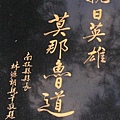 抗日英雄
莫那魯道
南投縣縣長
林源朗敬題